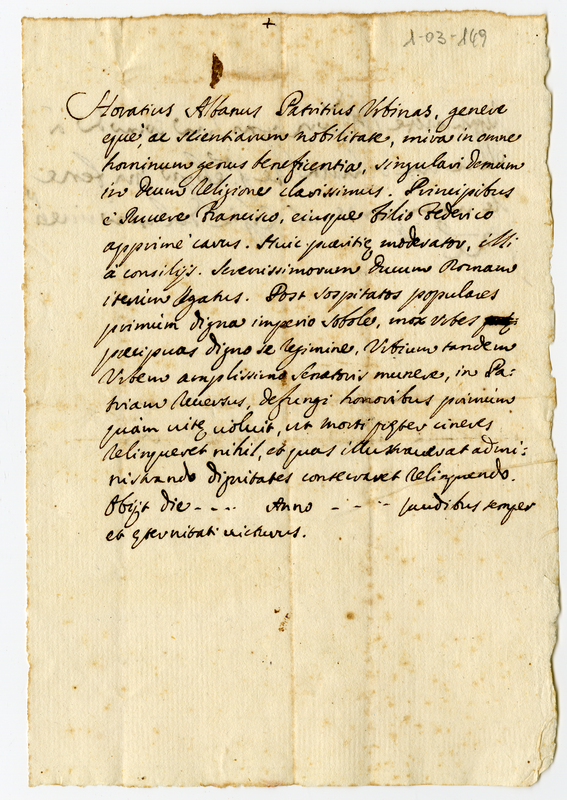 +
1-03-149
Horatius Albanus Patritius Vrbinas, genere
eque, ac scientiarum nobilitate, mira in omne
hominum genus beneficentia, singulari demum
in Deum religione clarissimus. Principibus
è Ruuere Francisco, eiusque filio Federico
apprimè carus. Huic pueritię moderator, illi
à consilijs. Serenissimorum Ducum Romam
iterum legatus. Post sospitatos populares
primùm digna imperio sobole, mox vrbes
precipuas digno se regimine, Vrbium tandem
Vrbem amplissimo senatoris munere, in Pa-
triam reuersus, defungi honoribus primùm
quàm uitę uoluit, ut morti pręter cineres
relinqueret nihil, et quas illustrauerat admi-
nistrando dignitates conseruaret relinquendo.
Obijt die - - - . Anno - - - - laudibus semper
et ęternitati uicturus.